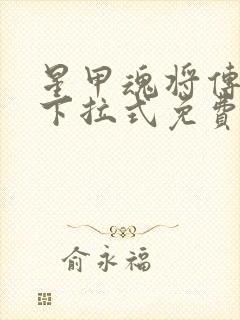 星甲魂将傳
下拉式免費
俞永福